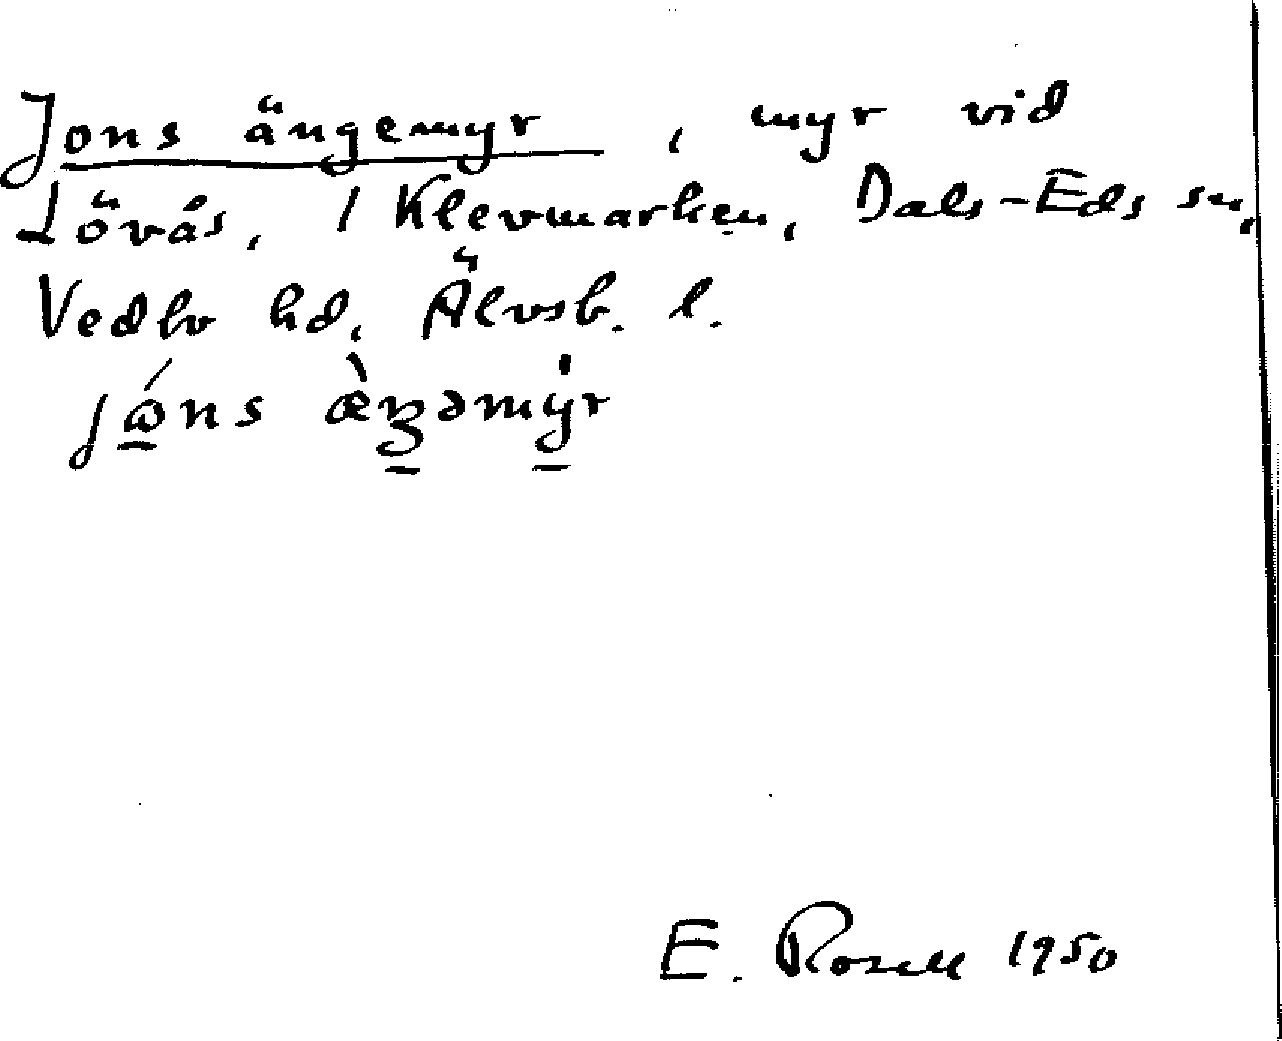 Jons ängemyr, myr vid
Lövås, 1 Klevmarken, Dals-Eds sn,
Vedbo hd, Älvsb. l.
E. Rosell 1950